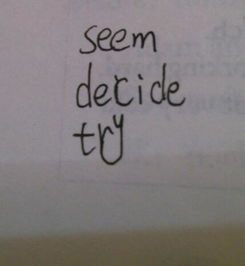 seem
decide
try